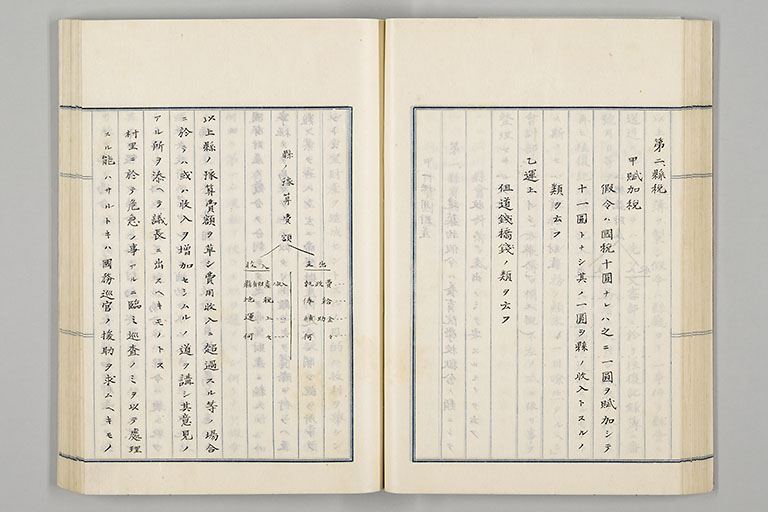 第二、縣税
甲賦加税
假令ハ國税十圓ナレハ之ニ一圓ヲ賦加シテ
十一圓トナシ其ノ一圓ヲ縣ノ收入トスルノ
類ヲ云フ
乙運上
但道錢橋錢ノ類ヲ云フ
縣ノ豫算費額
支出
收入
以上縣ノ豫算費額ヲ草シ費用收入ニ超過スル等ノ場合
ニ於テハ或ハ收入ヲ増加セシムルノ道ヲ講シ其意見ノ
アル所ヲ添ヘテ議長ニ出スヘキモノトス
村里ニ於テ危急ノ事アルニ臨ミ巡査ノミヲ以テ處理
スル能ハサルトキハ國務巡官ノ援助ヲ求ムヘキモノ